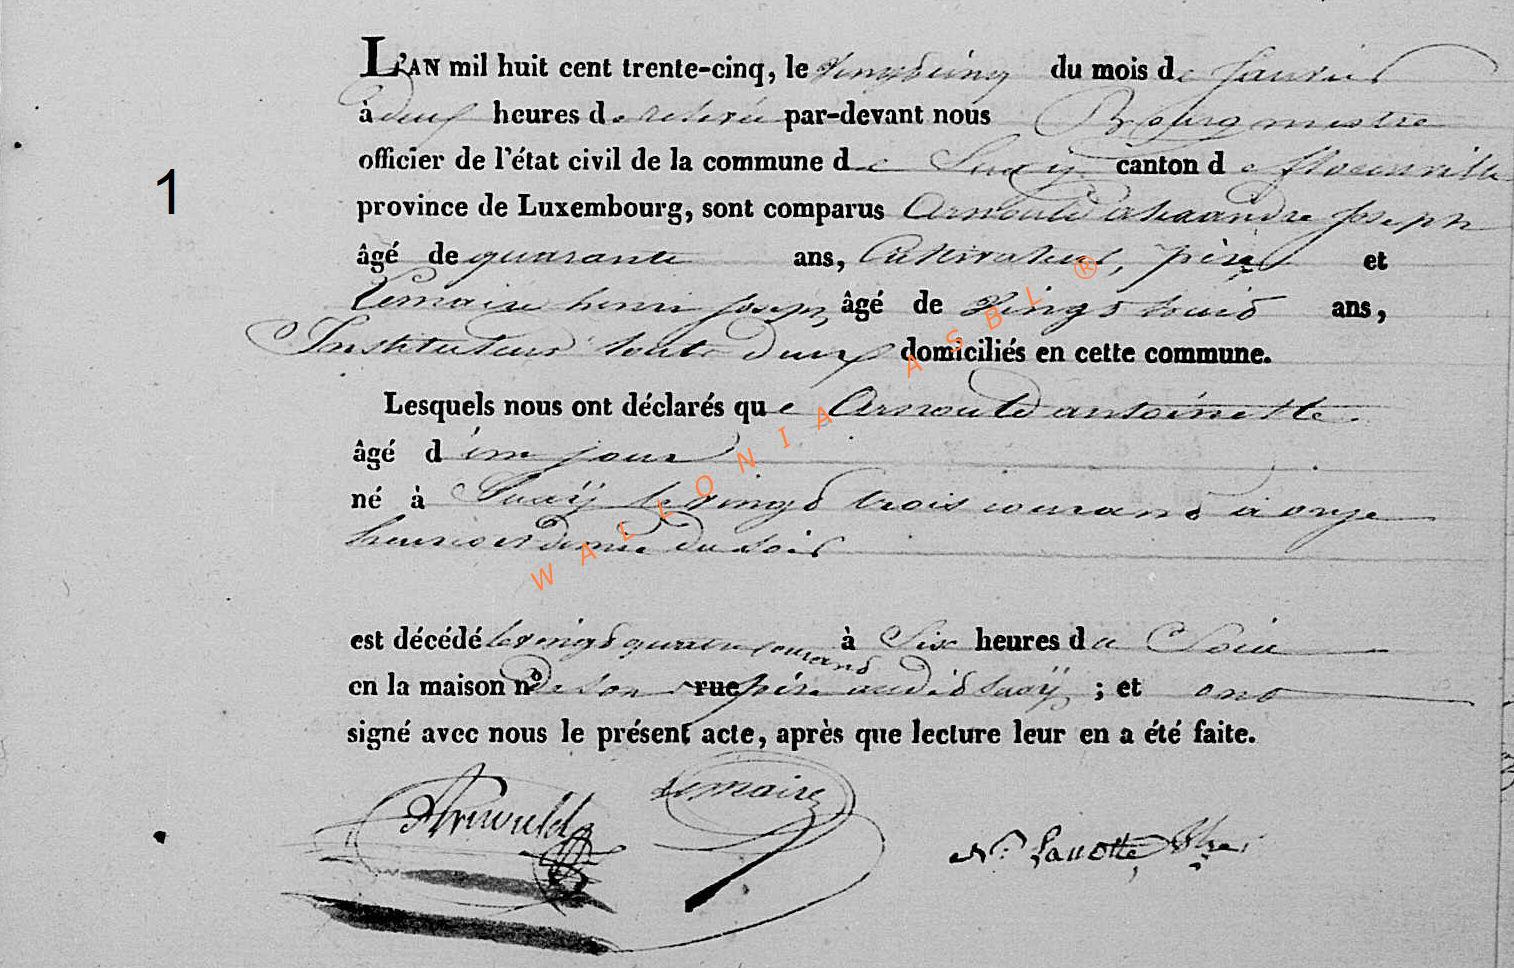 L'AN mil huit cent trente-cinq, le vingt cinq du mois de Janvier
à neuf heures de relevée par-devant nous Bourgmestre
officier de l'état civil de la commune de Suxÿ canton de florenville
province de Luxembourg, sont comparus Arnould alexandre Joseph
âgé de quarante ans, Cultivateur, père et
Lemaire henri Joseph, âgé de Vingt huit ans,
Instituteur touts deux domiciliés en cette commune.
Lesquels nous ont déclarés que Arnould antoinette
âgé d'un jour
né à Suxÿ le vingt trois courand à onze
heures et demie du soir
1
est décédé le vingt quatre courand à Six heures du Soir
en la maison n° de son rue père audit Suxÿ ; et ont
signé avec nous le présent acte, après que lecture leur en a été faite.
Arnould Lemaire
WALLONIA ASBL ®